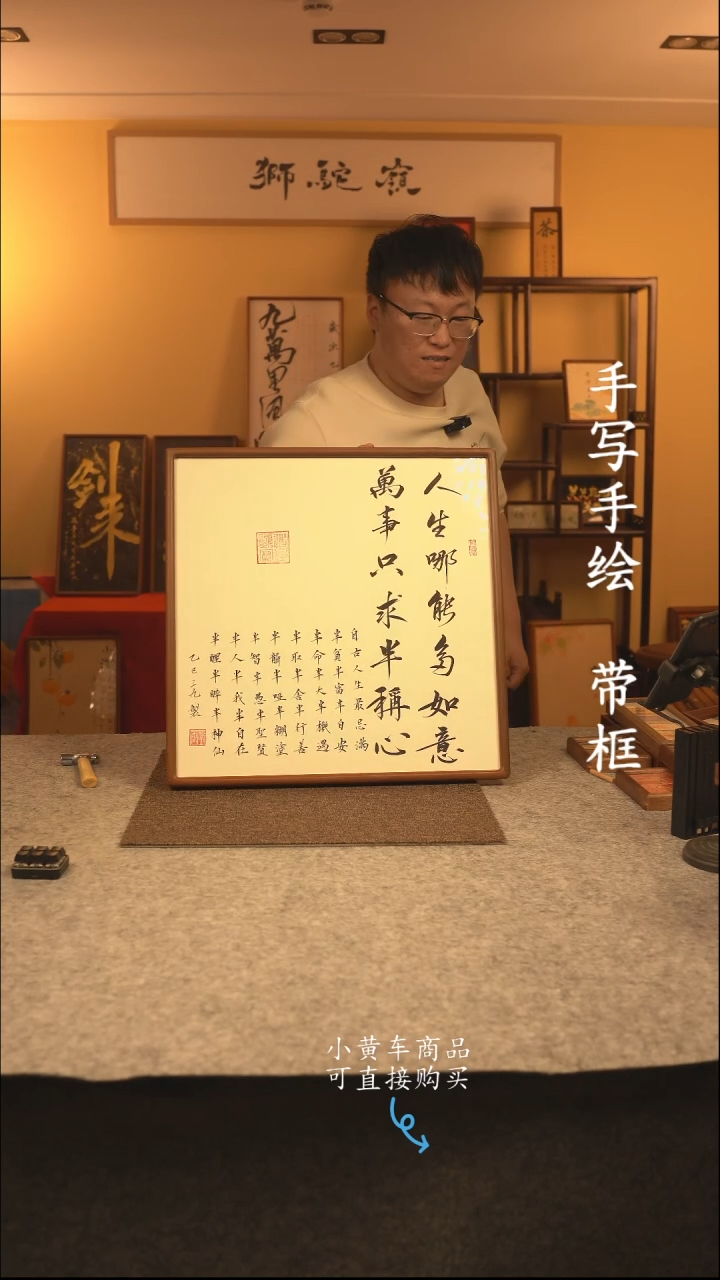 獅駝嶺
茶
九萬里
劍来
人生哪能多如意
萬事只求半稱心
自古人生最忌滿
半貧半富半自安
半命半天半機遇
半取半舍半行善
半聾半啞半糊塗
半智半愚半聖賢
半人半我半自在
半醒半醉半神仙
乙巳 製
手写手绘 带框
小黄车商品
可直接购买